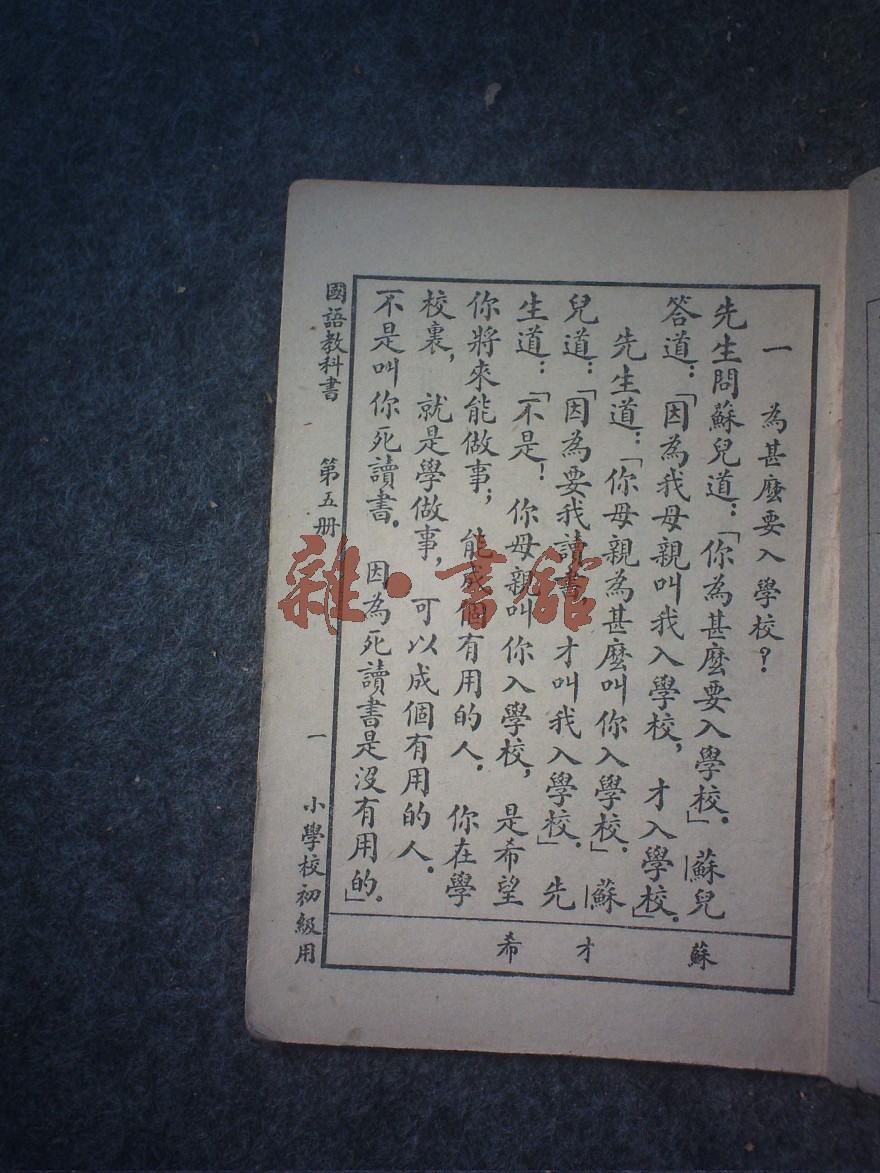 一　為甚麼要入學校？
先生問蘇兒道：「你為甚麼要入學校。」　蘇兒
答道：「因為我母親叫我入學校，才入學校。」
先生道：「你母親為甚麼叫你入學校。」　蘇
兒道：「因為要我讀書，才叫我入學校。」　先
生道：「不是！　你母親叫你入學校，是希望
你將來能做事；　能成個有用的人．　你在學
校裏，　就是學做事，可以成個有用的人．
不是叫你死讀書．　因為死讀書是沒有用的．」
蘇　才　希
國語教科書　第五册　一　小學校初級用
雜·書館